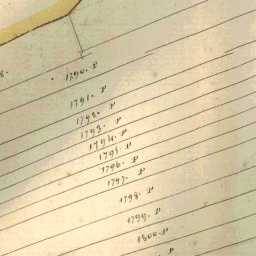 8.
1790. P
1791. P
1792. P
1793. P
1794. P
1795. P
1796. P
1797. P
1798. P
1799. P
1800. P
P